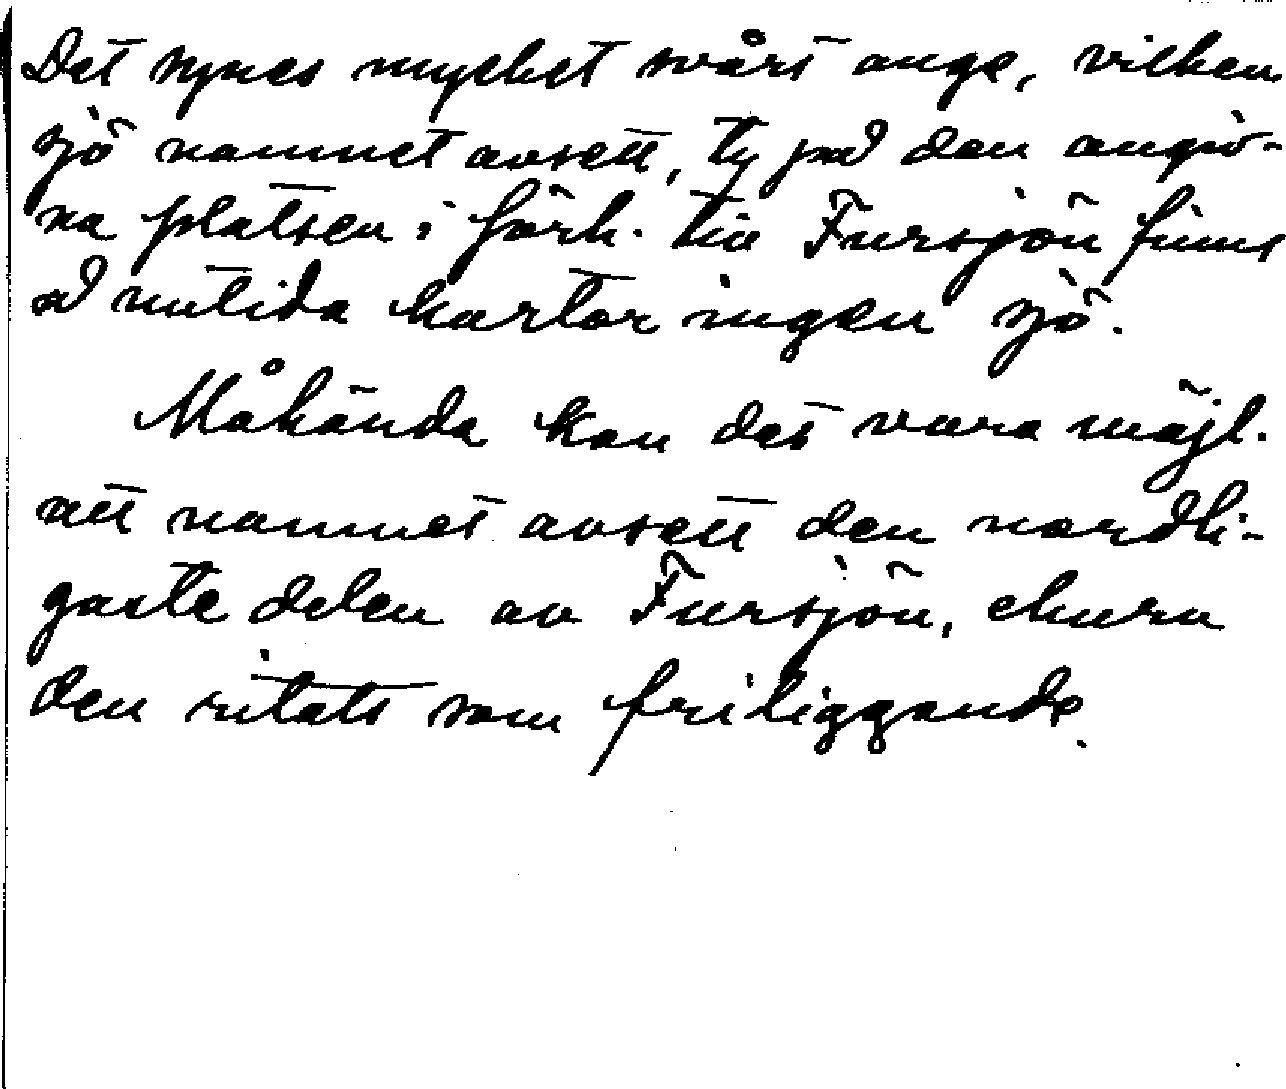 Det synes mycket svårt ange, vilken
sjö namnet avsett, ty på den angiv-
na platsen i förh. till Fursjön finns
å nutida kartor ingen sjö.
Måhända kan det vara möjl.
att namnet avsett den nordli-
gaste delen av Fursjön, churu
den ritats som friliggande.